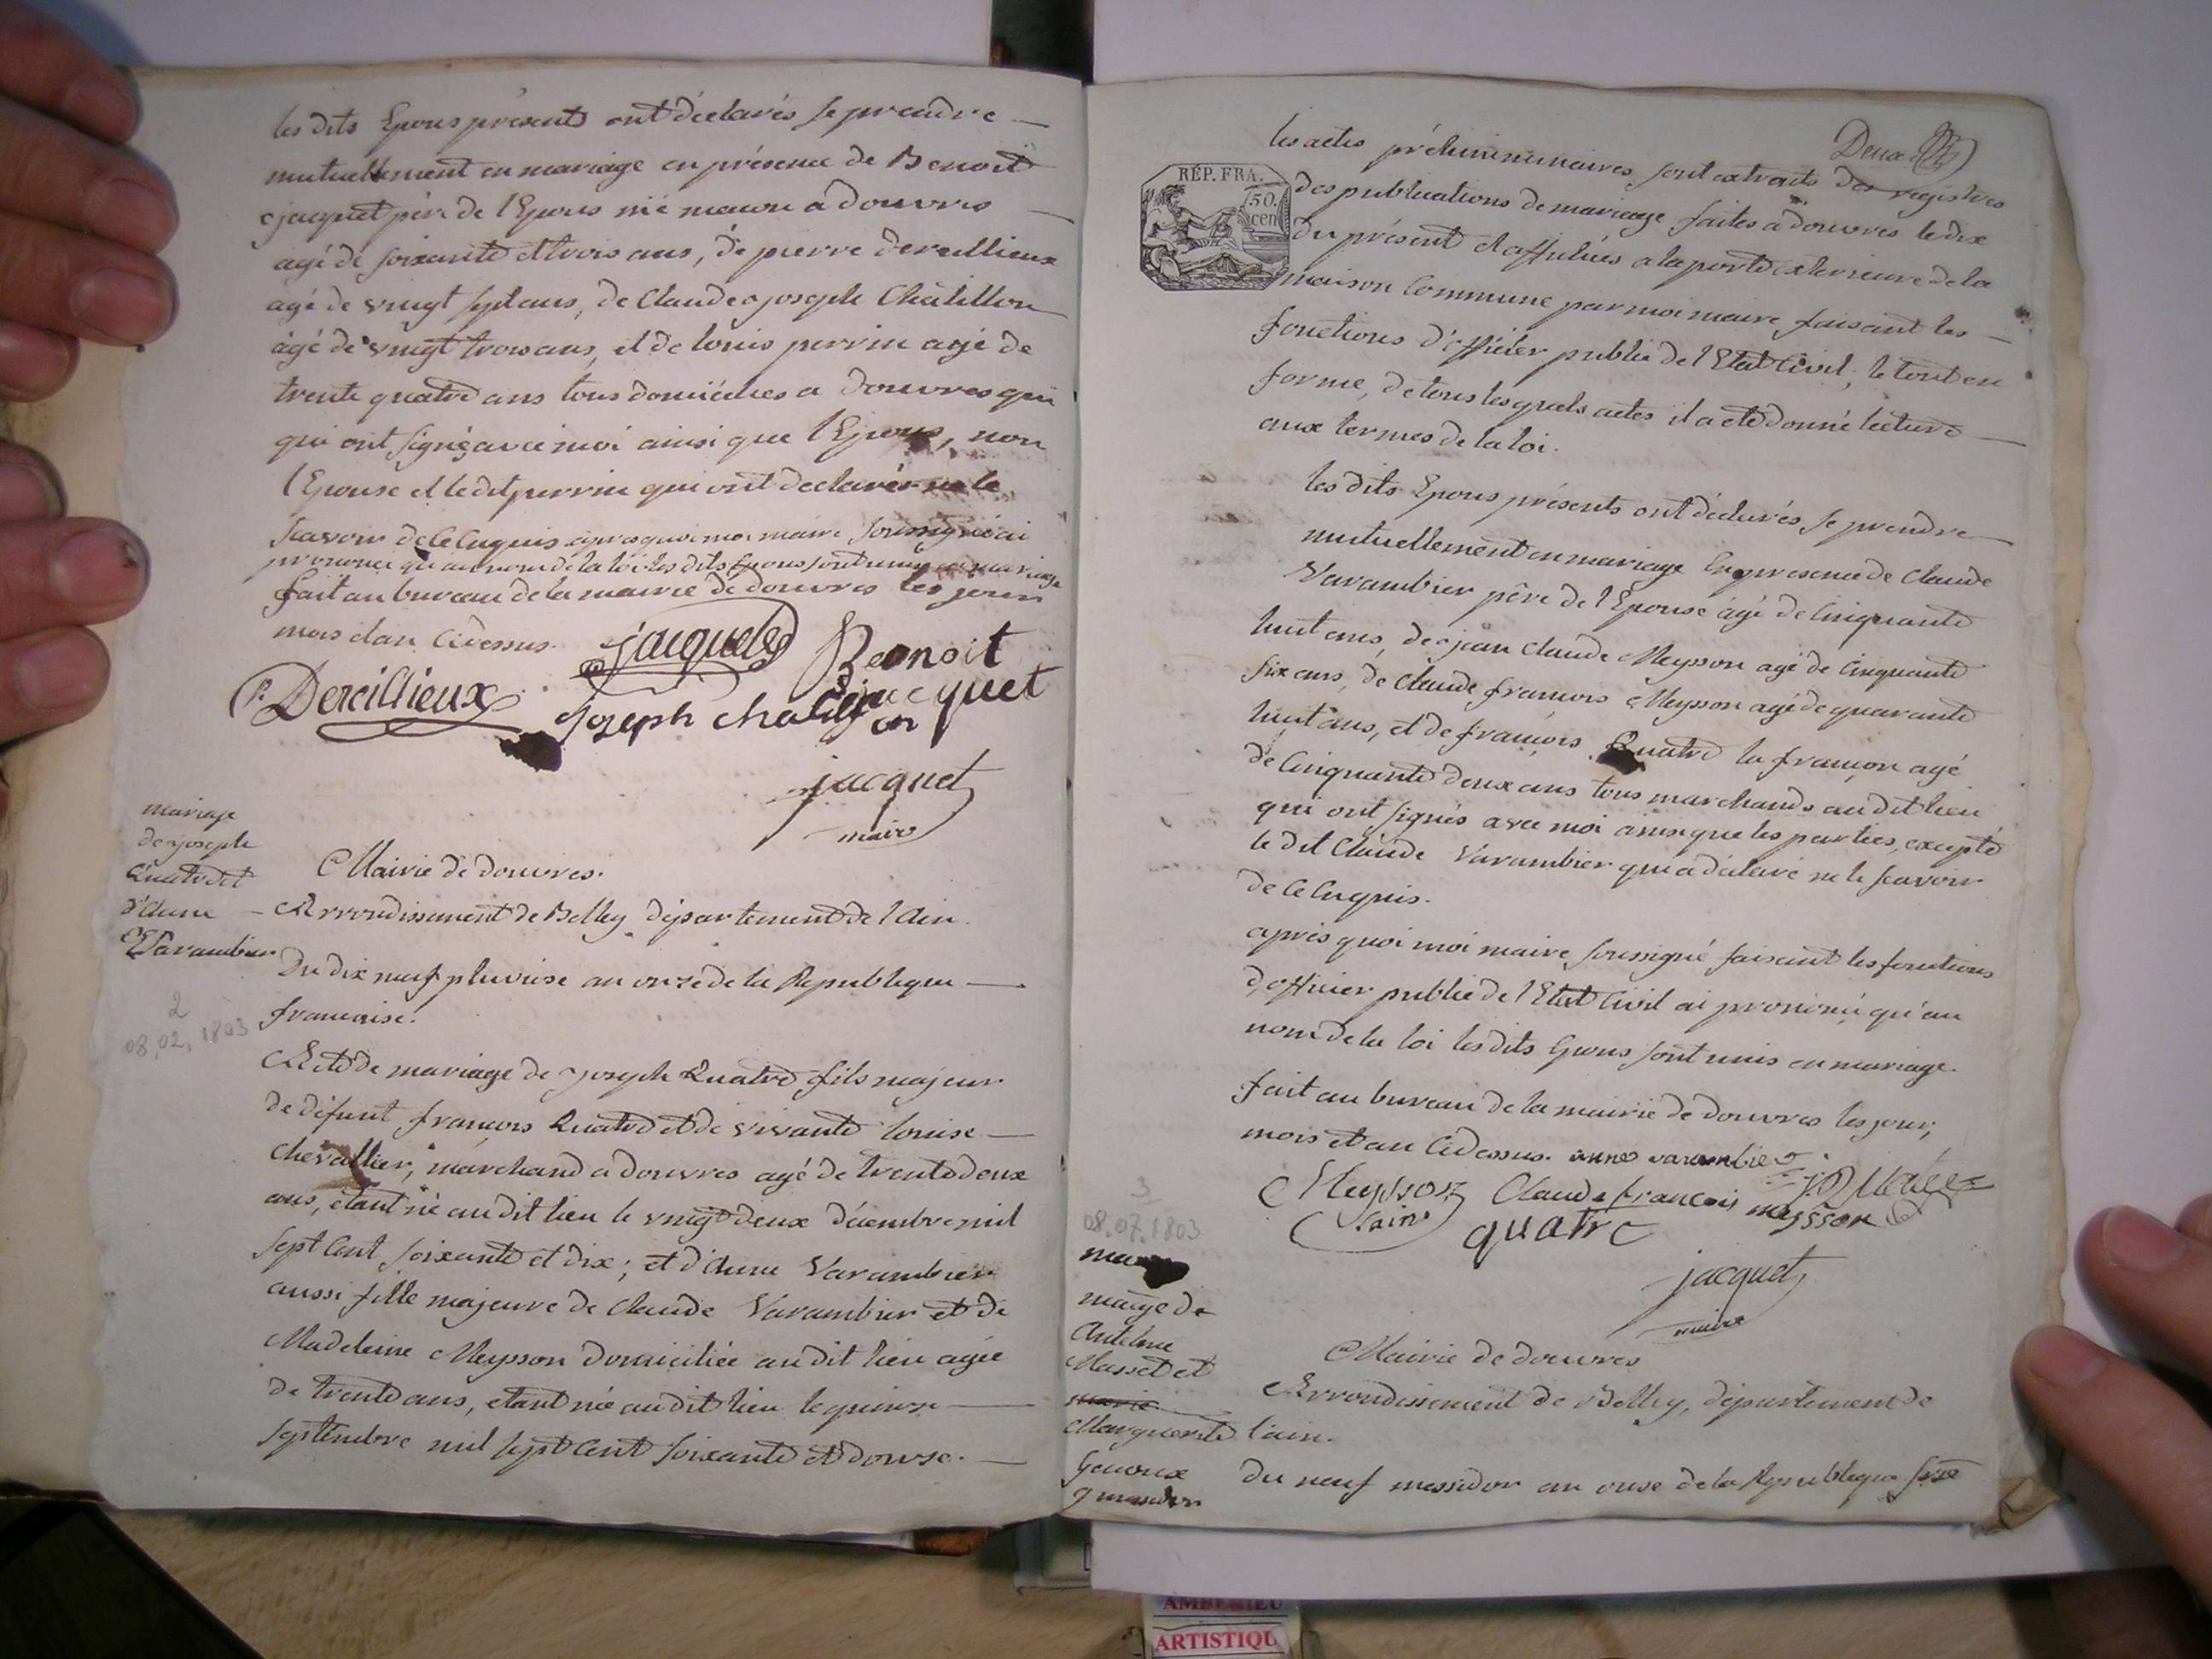 les dits Epous présents ont déclarés se prendre
mutuellement en mariage en présence de Benoit
jacquet père de l'Epous né maçon a douvres
agé de soixante et trois ans, de pierre dereillieux
agé de vingt sept ans, de Claude joseph Châtillon
âgé de vingt trois ans, et de louis perrin agé de
trente quatre ans tous domiciliés a douvres qui
qui ont signés avec moi ainsi que l'Epous, non
l'Epouse et le dit perrin qui ont declarés ne le
scavoir de ce enquis après quoi moi maire soussigné ai
prononcé qu'au nom de la loi les dits Epous sont unis en mariage
fait au bureau de la mairie de douvres les jour
mois et an Cidessus. jacquet Benoit
P. Dereillieux joseph chatillon jacquet
jacquet
maire
mariage
de joseph
Quatre et
d'Anne
Varambier
2
08.02.1803
Mairie de douvres.
Arrondissement de Belley département de l'Ain.
Du dix neuf pluviose an onze de la Republique
francaise.
Acte de mariage de joseph Quatre fils majeur
de défunt francois Quatre et de vivante louise
Chevallier, marchand a douvres agé de trente deux
ans, étant né au dit lieu le vingt deux décembre mil
sept Cent soixante et dix; et d'Anne Varambier
aussi fille majeure de Claude Varambier et de
Madeleine Meysson domiciliée au dit lieu agée
de trente ans, etant née au dit lieu le quinze
septembre mil sept Cent soixante et douze.
Deux
les actes préliminaires sont extraits des registres
RÉP. FRA.
50.
cen
des publications de mariage faites a douvres le dix
du présent et affichées a la porte exterieure de la
maison Commune par moi maire faisant les
fonctions d'officier public de l'Etat Civil; le tout en
forme, de tous les quels actes il a eté donné lecture
aux termes de la loi.
les dits Epous présents ont déclarés se prendre
mutuellement en mariage En presence de Claude
Varambier père de l'Epouse agé de Cinquante
huit ans, de jean Claude Meysson agé de Cinquante
six ans, de Claude francois Meysson agé de quarante
huit ans, et de francois Quatre la françon agé
de Cinquante deux ans tous marchands au dit lieu
qui ont signés avec moi ainsi que les parties, excepté
le dit Claude Varambier qui a déclaré ne le scavoir
de Ce Enquis.
après quoi moi maire soussigné faisant les fonctions
d'officier public de l'Etat Civil ai prononcé qu'au
nom de la loi les dits Epous sont unis en mariage.
fait au bureau de la mairie de douvres les jour,
mois et an Cidessus. anne varambier
Meysson Claude francois meysson
quatre
jacquet
maire
3
08.07.1803
mariage de
Antelme
Masset et
marie
Marguerite
Genoux
9 messidor
Mairie de douvres
Arrondissement de Belley, département de
l'ain.
du neuf messidor an onze de la Republique frse